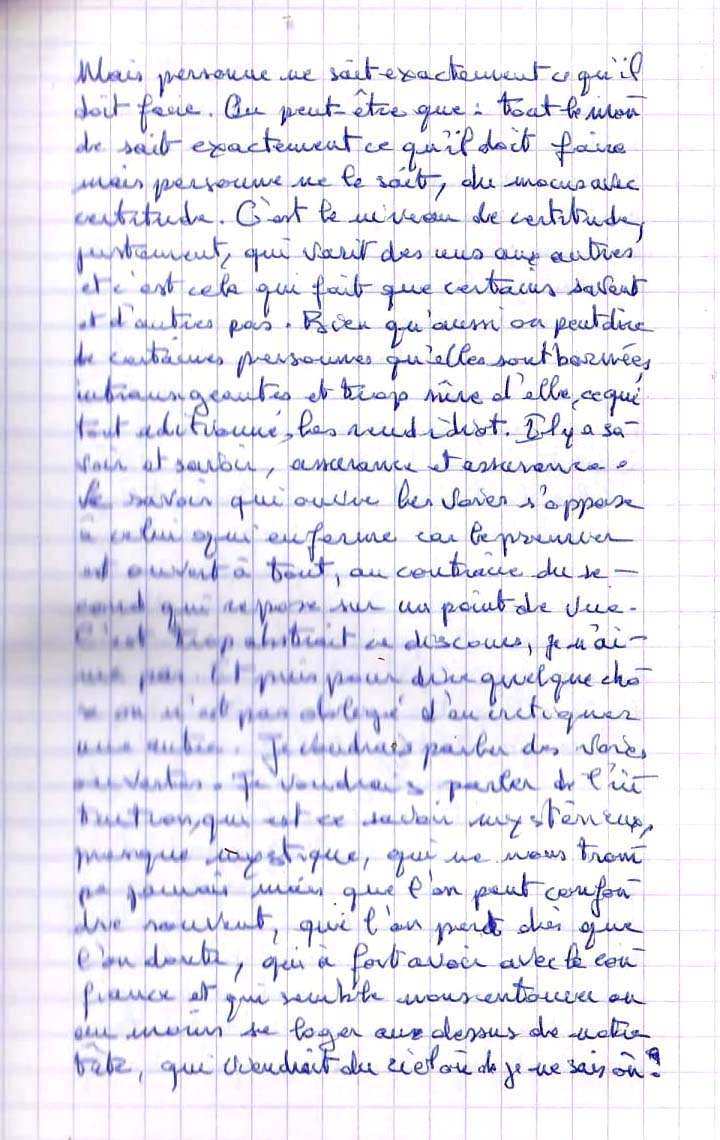 Mais personne ne sait exactement ce qu'il
doit faire. Ou peut-être que : tout le mon
de sait exactement ce qu'il doit faire
mais personne ne le sait, du moins avec
certitude. C'est le niveau de certitude,
justement, qui varit des uns aux autres
et c'est cela qui fait que certains savent
et d'autres pas. Bien qu'aussi on peut dire
de certaines personnes qu'elles sont bornées,
intransigeantes et trop sûre d'elle, ce qui,
tout aditionné, les rend idiot. Il y a sa-
voir et savoir, assurance et assurance.
Le savoir qui ouvre les voies s'oppose
à celui qui enferme car le premier
est ouvert à tout, au contraire du se-
cond qui repose sur un point de vue.
C'est trop abstrait ce discours, je n'ai-
me pas. Et puis pour dire quelque cho
se on n'est pas obligé d'en critiquer
une autre. Je voudrais parler des voies
ouvertes. Je voudrais parler de l'in
tuition, qui est ce savoir mystérieux,
presque mystique, qui ne nous trom
pe jamais mais que l'on peut confon
dre souvent, qui l'on perd dès que
l'on doute, qui à fort avoir avec la con
fiance et qui semble nous entourer ou
au moins se loger au dessus de notre
tête, qui viendrait du ciel ou de je ne sais où ?